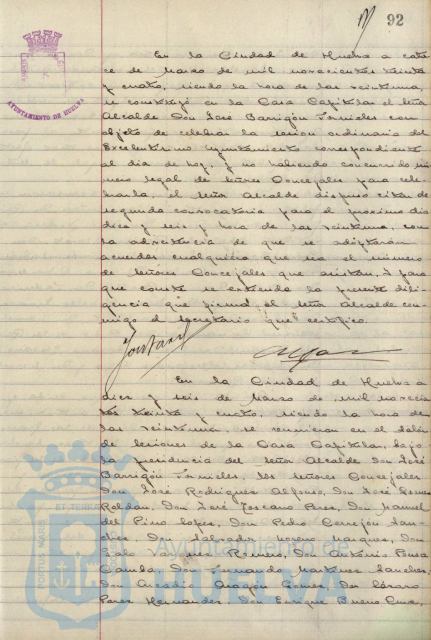 92
AYUNTAMIENTO DE HUELVA
En la Ciudad de Huelva a cator
ce de Marzo de mil novecientos treinta
y cuatro, siendo la hora de las veintiuna,
se constituyó en la Casa Capitular el señor
Alcalde Don José Barrigón Fornieles con
objeto de celebrar la sesion ordinaria del
Excelentísimo Ayuntamiento correspondiente
al dia de hoy, y no habiendo concurrido nú
mero legal de señores Concejales para cele-
brarla, el señor Alcalde dispuso citar de
segunda convocatoria para el proximo dia
diez y seis y hora de las veintiuna, con
la advertencia de que se adoptarán
acuerdos cualquiera que sea el numero
de señores Concejales que asistan. Y para
que conste se extiende la presente dili-
gencia que firma el señor Alcalde con-
migo el Secretario que certifico.
En la Ciudad de Huelva a
diez y seis de Marzo de mil novecien
tos treinta y cuatro, siendo la hora de
las veintiuna, se reunieron en el Salón
de sesiones de la Casa Capitular, bajo
la presidencia del señor Alcalde Don José
Barrigón Fornieles, los señores Concejales
Don José Rodriguez Alfonso, Don José Ponce
Roldan, Don José Toscano Perez, Don Manuel
del Pino Lopez, Don Pedro Cerrejon San-
chez, Don Salvador Moreno Marquez, Don
Galo Vazquez Romero, Don Antonio Pousa
Camba, Don Fernando Martinez Sanchez,
Don Arcadio Aragón Gomez, Don
Perez Hernandez, Don Enrique Bueno Cruz,
PORTUS MARIS
ET TERRAE
Ayuntamiento de
HUELVA